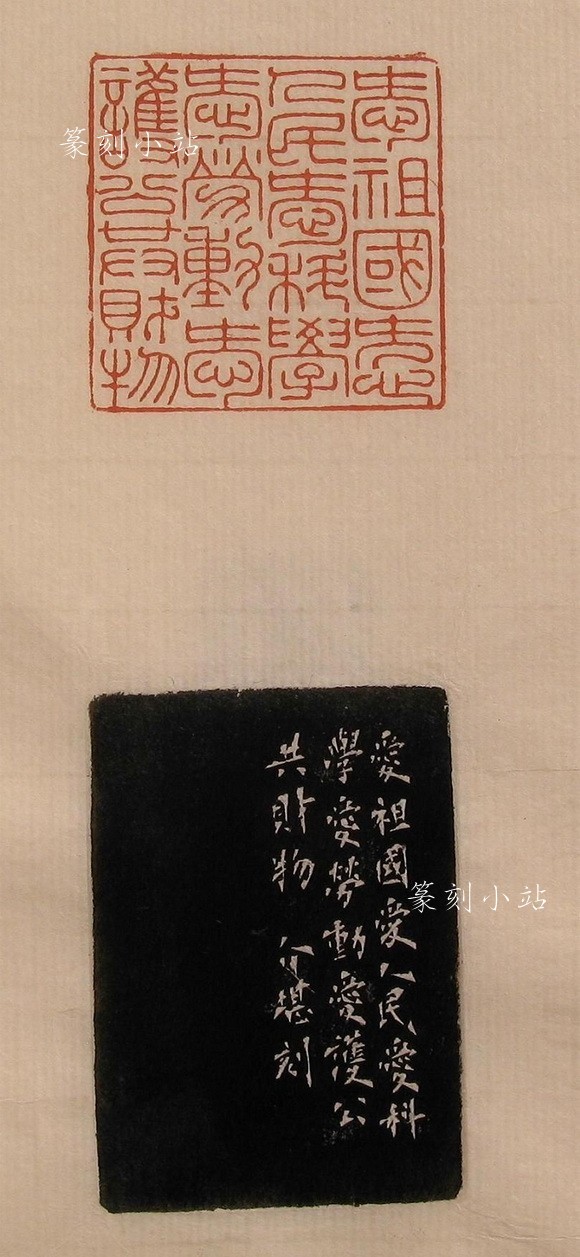 愛祖國愛
人民愛科學
愛勞動愛
護公共財物
篆刻小站
愛祖國愛人民愛科
學愛勞動愛護公
共財物 介堪刻
篆刻小站